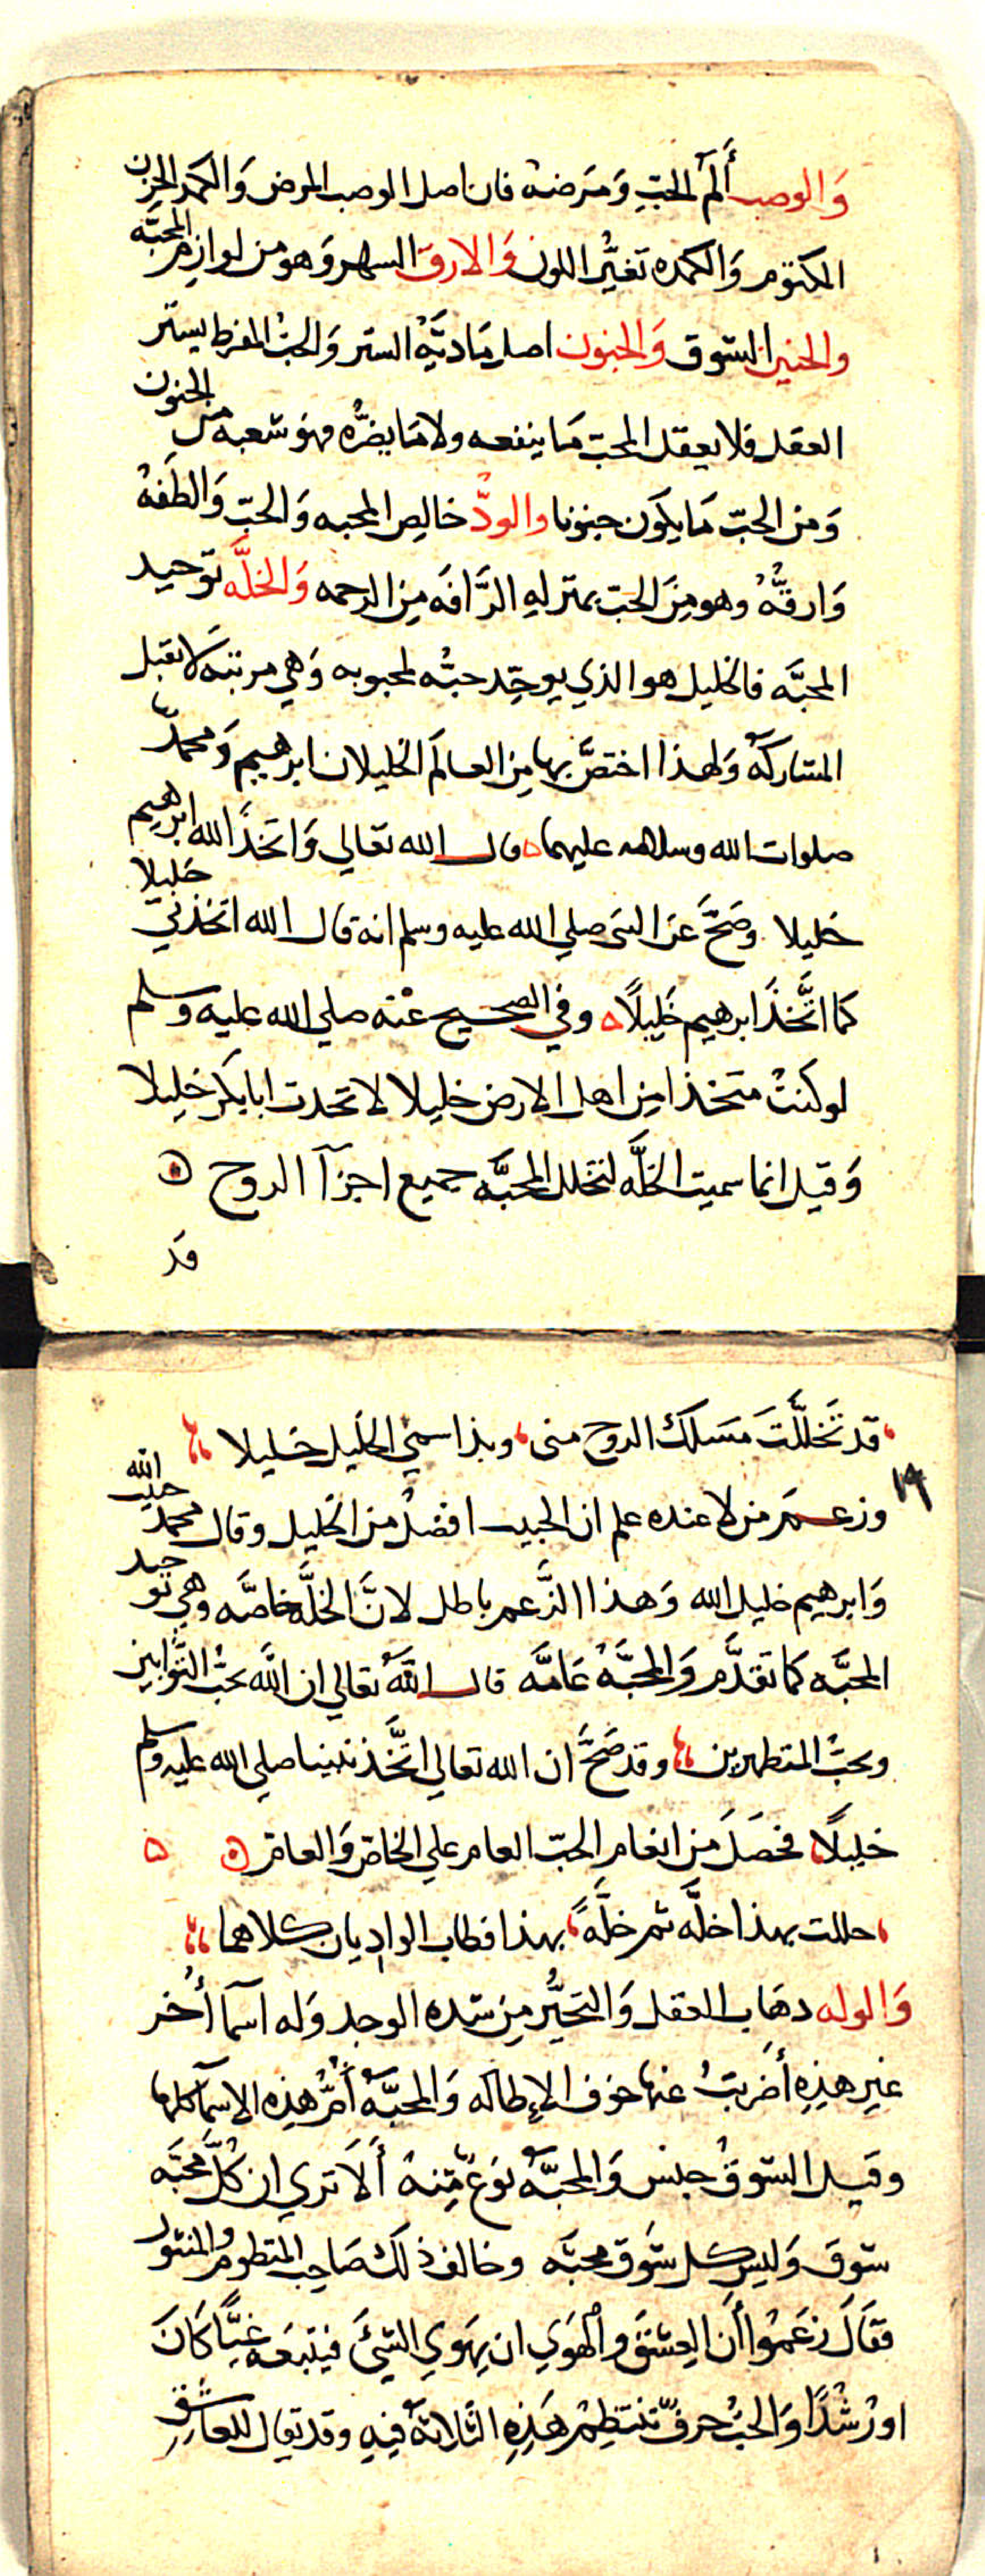 وَالوصب أَلَمُ الحبّ وَمَرَضه فان اصل الوصب المرض وَالكمد الحزن
المكتوم وَالكمده تغيُّر اللون وَالارق السهر وَهو من لوازم المحبَّه
والحنين الشوق وَالجنون اصل مَادتِه الستر وَالحبّ المفرط يستر
العقل فلا يعقل المحب مَا ينفعه ولا مَا يضرُّه فهو شعبه من الجنون
وَمن الحبّ مَا يكون جنونا والودّ خالِص المحبه وَالحبّ وَالطَفهُ
وَارقُّهُ وهو مِنَ الحب بمنزلهِ الرَّافَه مِن الرحمه وَالخلَّه توحيد
المحبَّه فالخليل هو الذي يوحِّد حبُّه لمحبوبه وَهي مرتبَه لا تقبل
المشاركَهُ وَلهذا اختصَّ بها مِن العالَم الخليلان ابرهيم وَمحمدٌ
صلوات الله وسلامه عليهما قال الله تعالي وَاتخذَ الله ابرهيم خليلا
خليلا وصَحَّ عن النبى صلي الله عليه وسلم انه قال الله اتخذني
كما اتَّخذَ ابرهيم خَليلًا وفي الصحيح عنْه صلي الله عليه وسلم
لو كنتُ متخذا مِن اهل الارض خليلا لاتخذت ابابكر خليلا
وَقيل انما سميت الخلَّه لتخلل المحبَّه جميع اجزآ الروح
قَد
قد تَخللَّتَ مَسَلكَ الروح منى وبذا سمي الخَليل خَليلا
١٩
وزعَم من لا عنده علم ان الحبيب افضلُ من الخليل وقال محمدٌ حبيب الله
وَابرهيم خليل الله وَهذا الزَّعم باطل لانَّ الخلَّه خاصَّه وهي توحيد
المحبَّه كما تقدَّم وَالمحبَّهُ عَامَّه قال اللَّهُ تعالي ان اللَّه يحبُّ التَّوابين
ويحبُّ المتطهرين وقد صَحَّ ان الله تعالي اتَّخذ نبينا صلي الله عليه وسلم
خليلًا فحصَلَ مِن انعام الحبّ العام علي الخاصّ وَالعام
حللت بهذا خلَّه ثم خلَّهً بهذا فطاب الواديان كلاهما
وَالوله دهَاب العقل وَالتحيُّر مِن شده الوجد وَله اسمآ أُخر
غير هذِهِ أَضربتُ عنها خوف الإطاله وَالمحبَّهُ أُمُّ هذِه الاسمآ كلها
وقيل الشوقُ جنس وَالمحبَّهُ نوعٌ مِّنهُ أَلَا تري ان كُلَّ محبَّه
شوق وَليس كل شَوق محبَّه وخالف ذلكَ صَاحِب المنظوم والمنثور
فقَالَ زَعَمُوا أَن العِشقَ وَالهَوي ان يهَوي الشيَئ فيتبَعَه غيًّا كَانَ
اورُشْدًا وَالحُبّ حرفٌ تنتظِم هَذِهِ الثلاثهُ فيهِ وقد يقال للعاشقِ